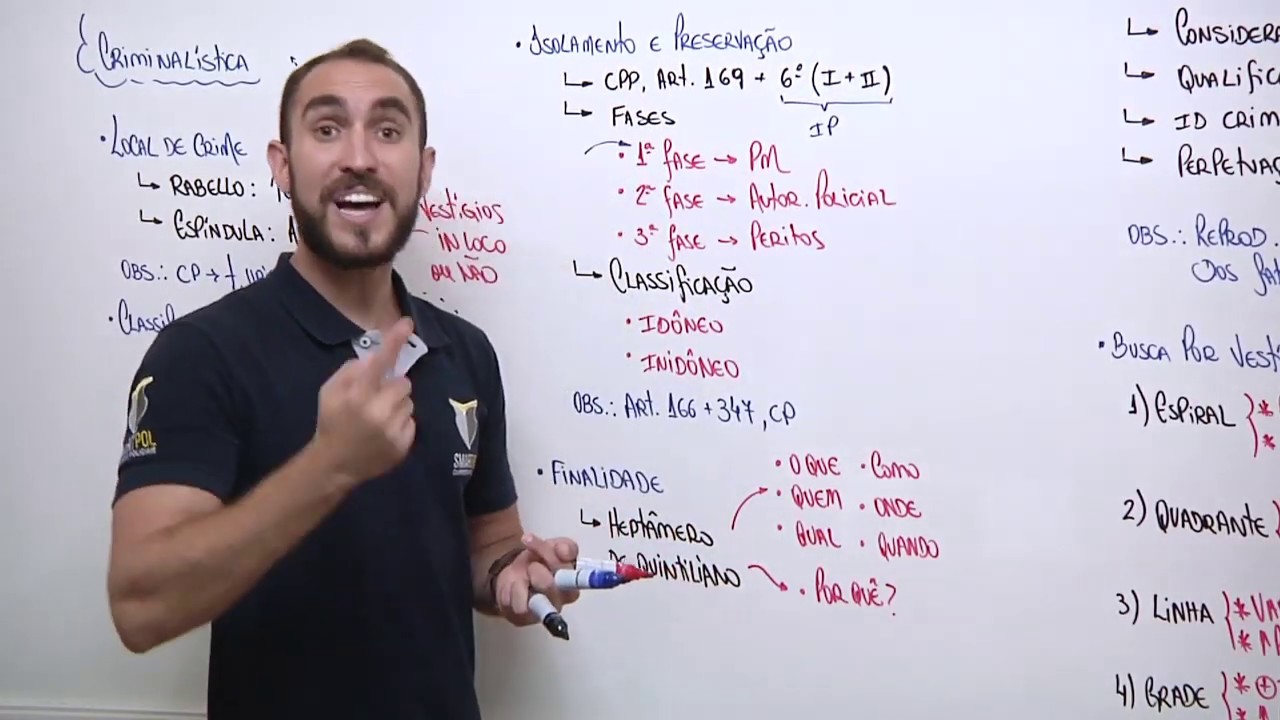 CRIMINALÍSTICA
• LOCAL DE CRIME
↳ RABELLO:
↳ ESPÍNDULA: A
VESTÍGIOS
IN LOCO
OU NÃO
OBS.: CP →
• CLASSIF
• ISOLAMENTO E PRESERVAÇÃO
↳ CPP, ART. 169 + 6º (I + II)
IP
↳ FASES
• 1ª FASE → PM
• 2ª FASE → AUTOR. POLICIAL
• 3ª FASE → PERITOS
↳ CLASSIFICAÇÃO
• IDÔNEO
• INIDÔNEO
OBS.: ART. 166 + 347, CP
• FINALIDADE
↳ HEPTÂMERO
DE QUINTILIANO
• O QUE • COMO
• QUEM • ONDE
• QUAL • QUANDO
• POR QUÊ?
↳ CONSIDERA
↳ QUALIFIC
↳ ID CRIM
↳ PERPETUAÇ
OBS.: REPROD.
DOS FAT
• BUSCA POR VESTÍ
1) ESPIRAL } *
*
2) QUADRANTE }
3) LINHA { * VA
*
4) GRADE { * +
*
POL
SMART